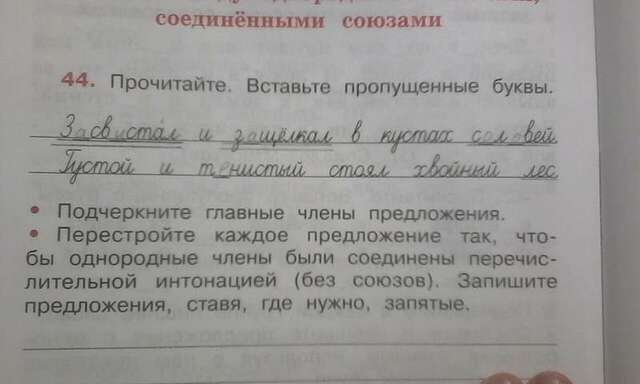 соединёнными союзами
44. Прочитайте. Вставьте пропущенные буквы.
Засвистал и защёлкал в кустах соловей
Густой и тенистый стоял хвойный лес
• Подчеркните главные члены предложения.
• Перестройте каждое предложение так, что-
бы однородные члены были соединены перечис-
лительной интонацией (без союзов). Запишите
предложения, ставя, где нужно, запятые.